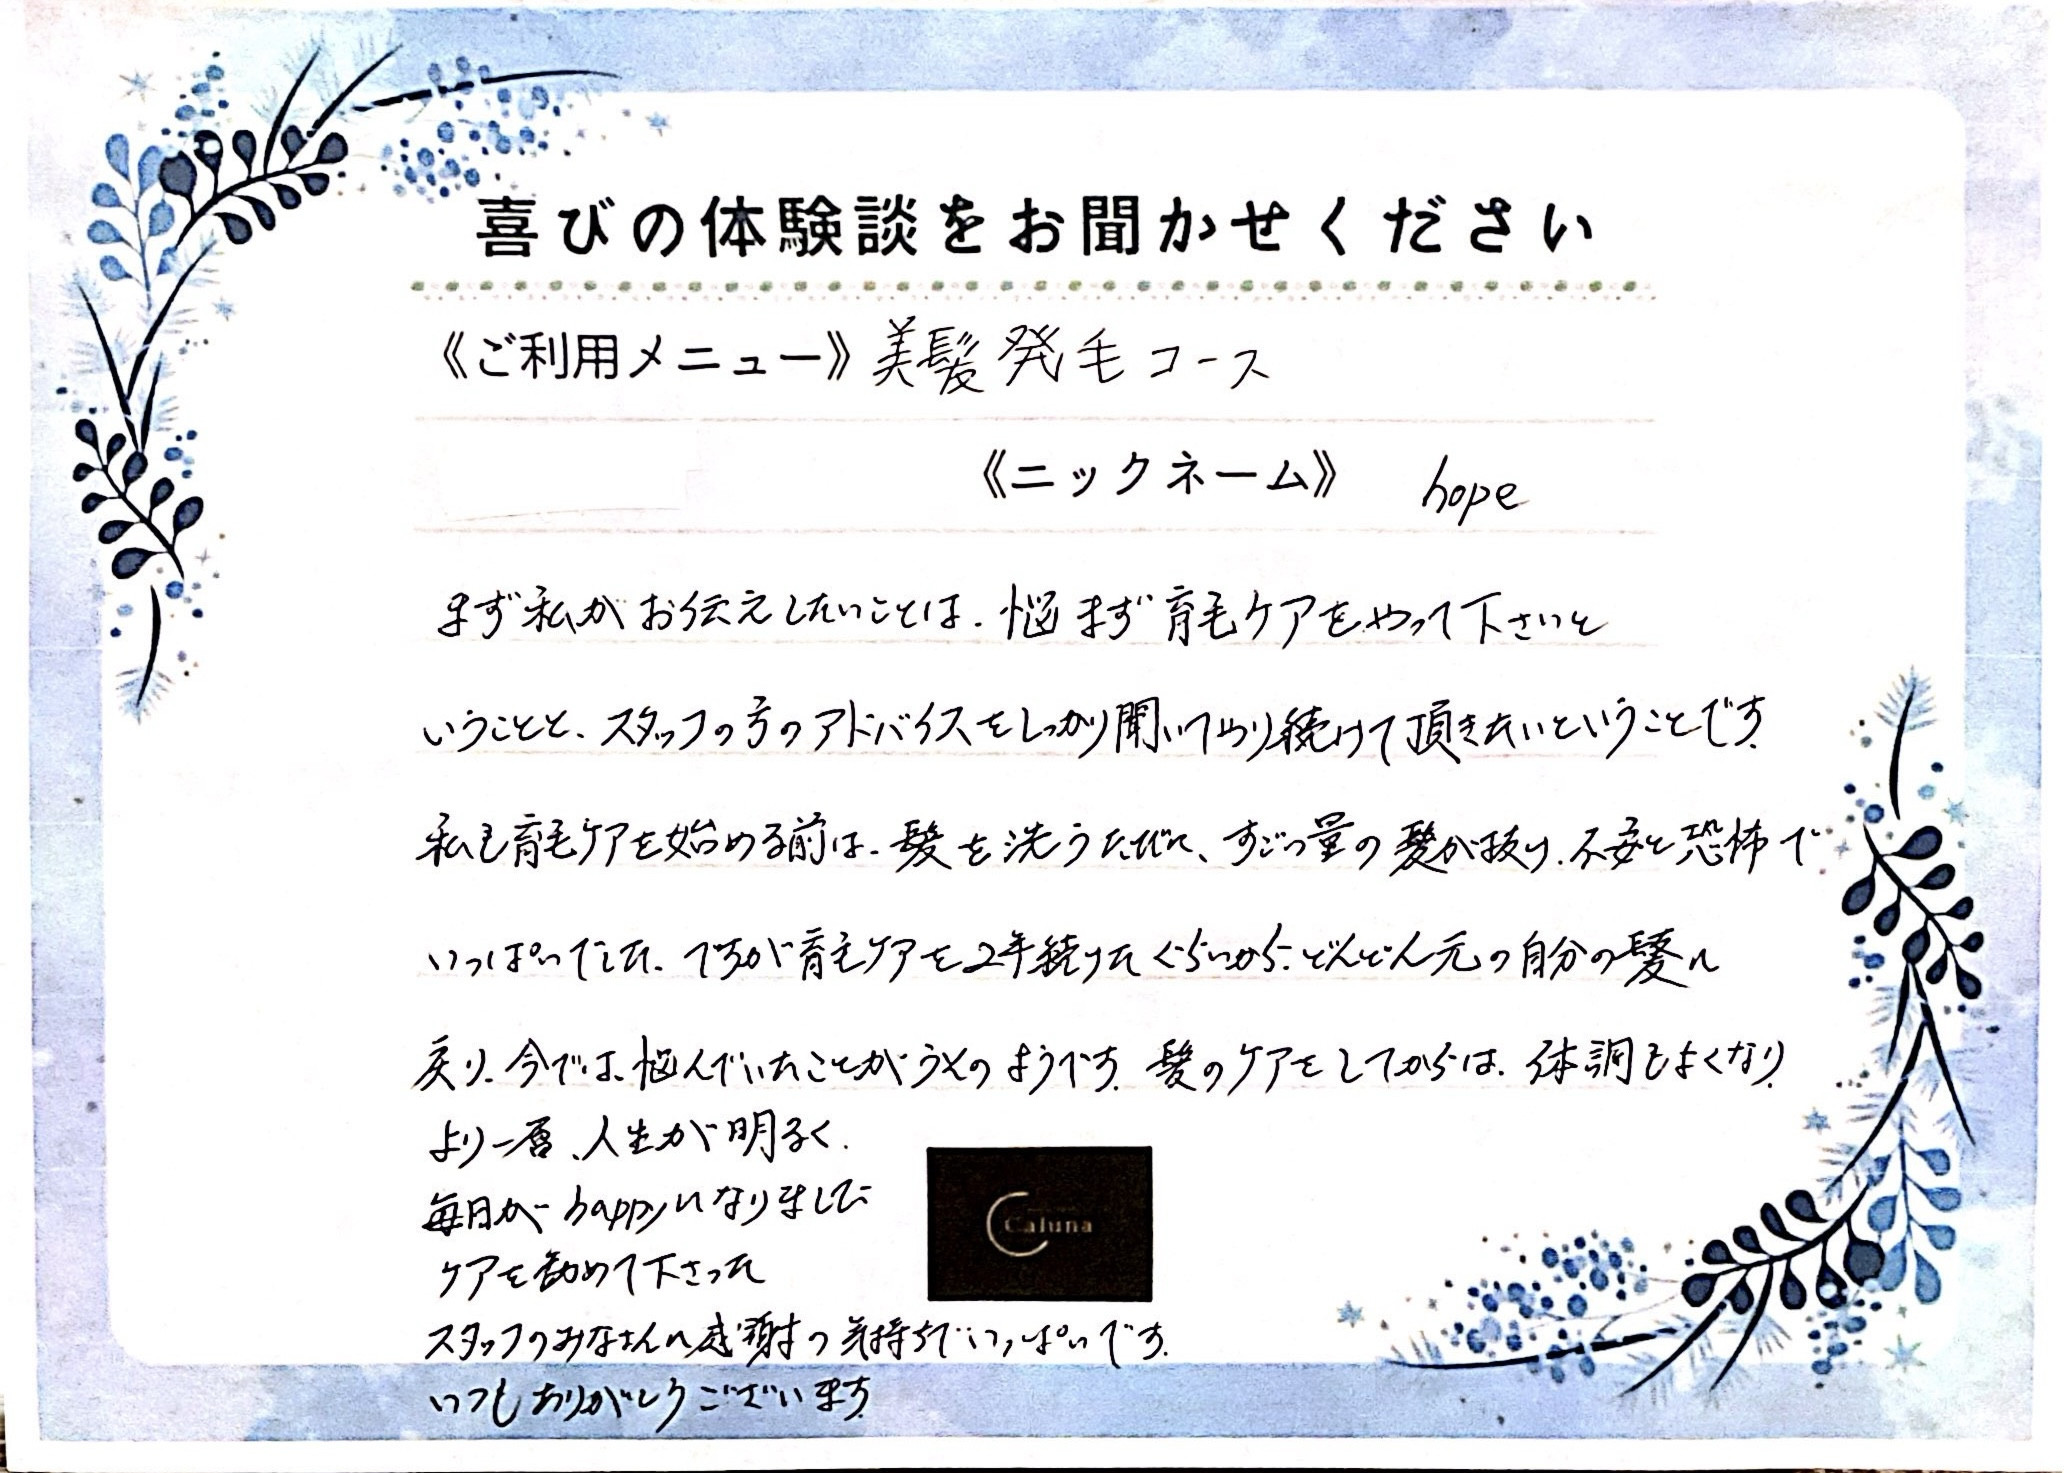 喜びの体験談をお聞かせください
《ご利用メニュー》美髪発毛コース
《ニックネーム》 hope
まず私がお伝えしたいことは、悩まず育毛ケアをやって下さいと
いうことと、スタッフの方のアドバイスをしっかり聞いてやり続けて頂きたいということです。
私も育毛ケアを始める前は、髪を洗うたびに、すごい量の髪が抜け、不安と恐怖で
いっぱいでした。ですが育毛ケアを2年続けたぐらいから、どんどん元の自分の髪に
戻り、今では、悩んでいたことがうそのようです。髪のケアをしてからは、体調もよくなり、
より一層、人生が明るく、
毎日がhappyになりました
ケアを勧めて下さった
スタッフのみなさんに感謝の気持ちでいっぱいです。
いつもありがとうございます。
Caluna